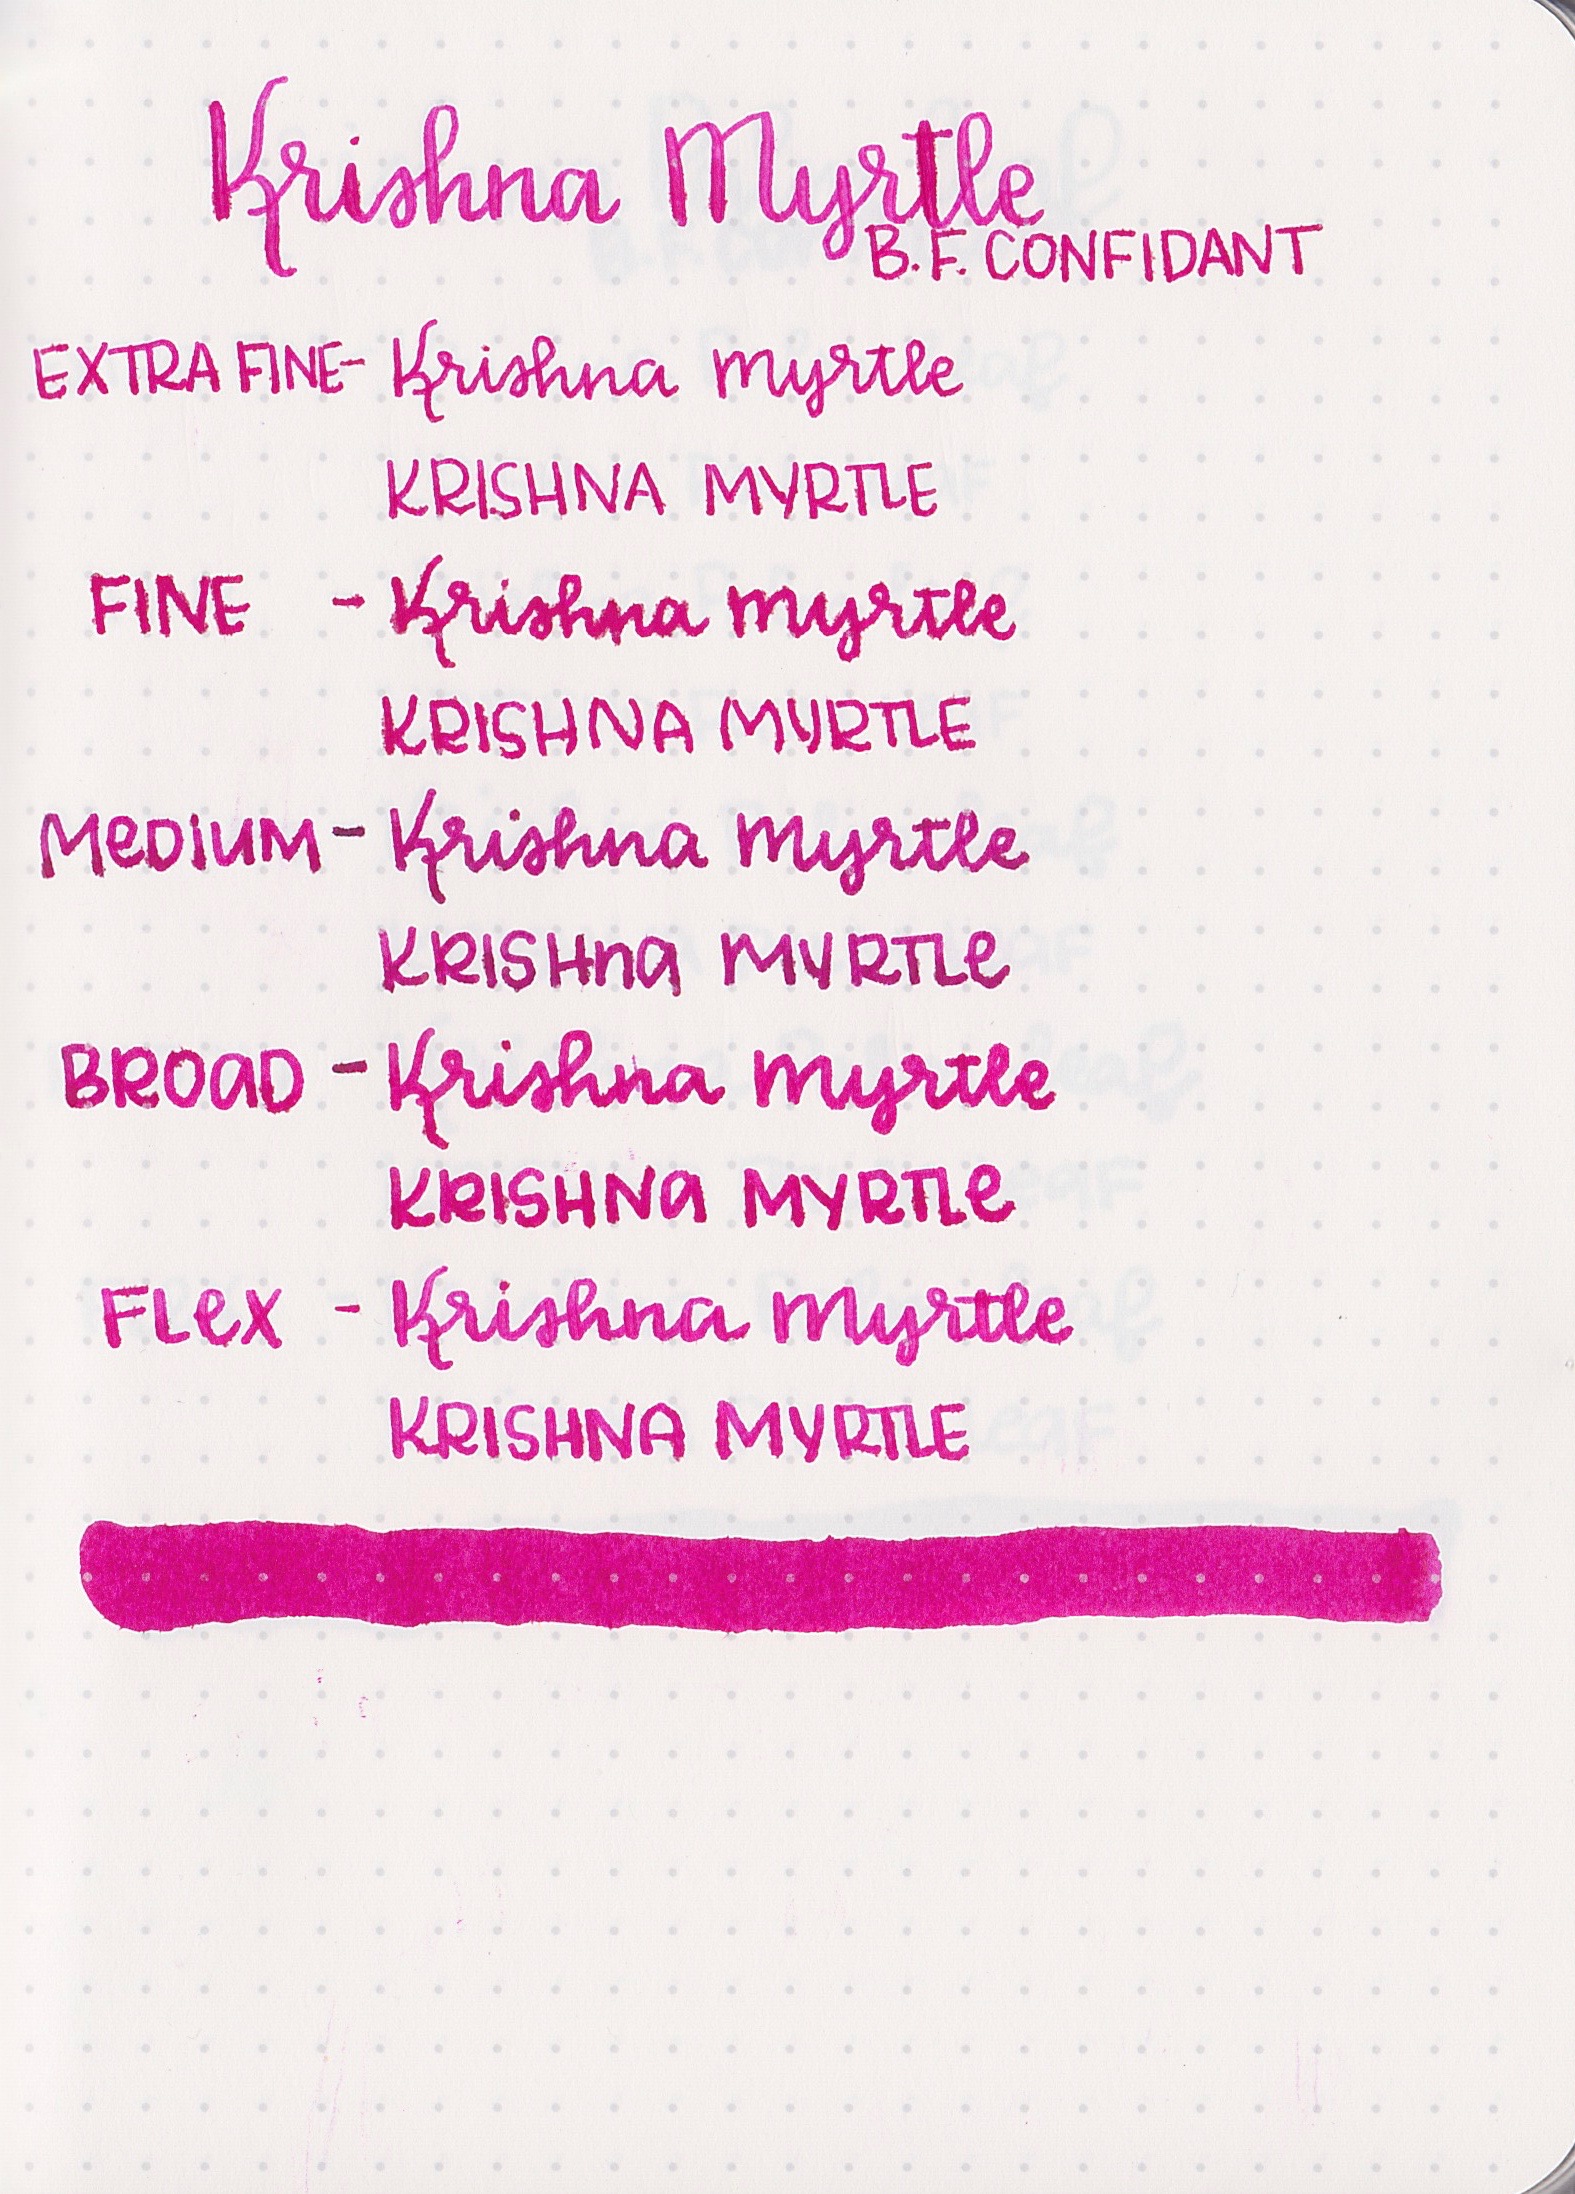 Krishna Myrtle
B.F. CONFIDANT
EXTRA FINE- Krishna myrtle
KRISHNA MYRTLE
FINE - Krishna myrtle
KRISHNA MYRTLE
MeDIUM - Krishna myrtle
KRISHna MYRTLe
BROaD - Krishna myrtle
KRISHNa MYRTLe
FLeX - Krishna myrtle
KRISHNA MYRTLE